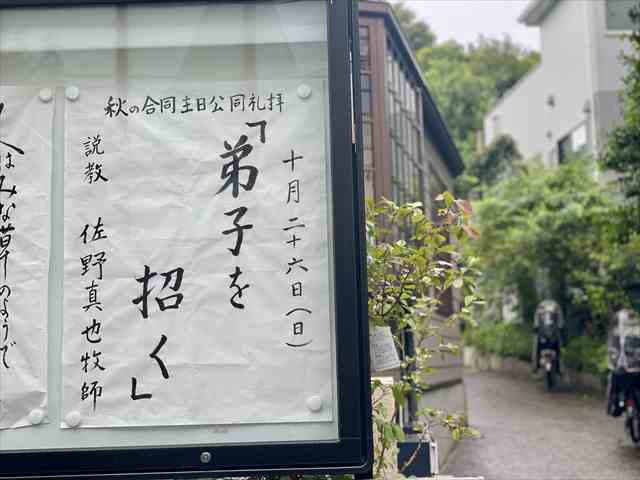 秋の合同主日公同礼拝
十月二十六日(日)
「弟子を
招く」
説教 佐野真也牧師
人はみな草のようで